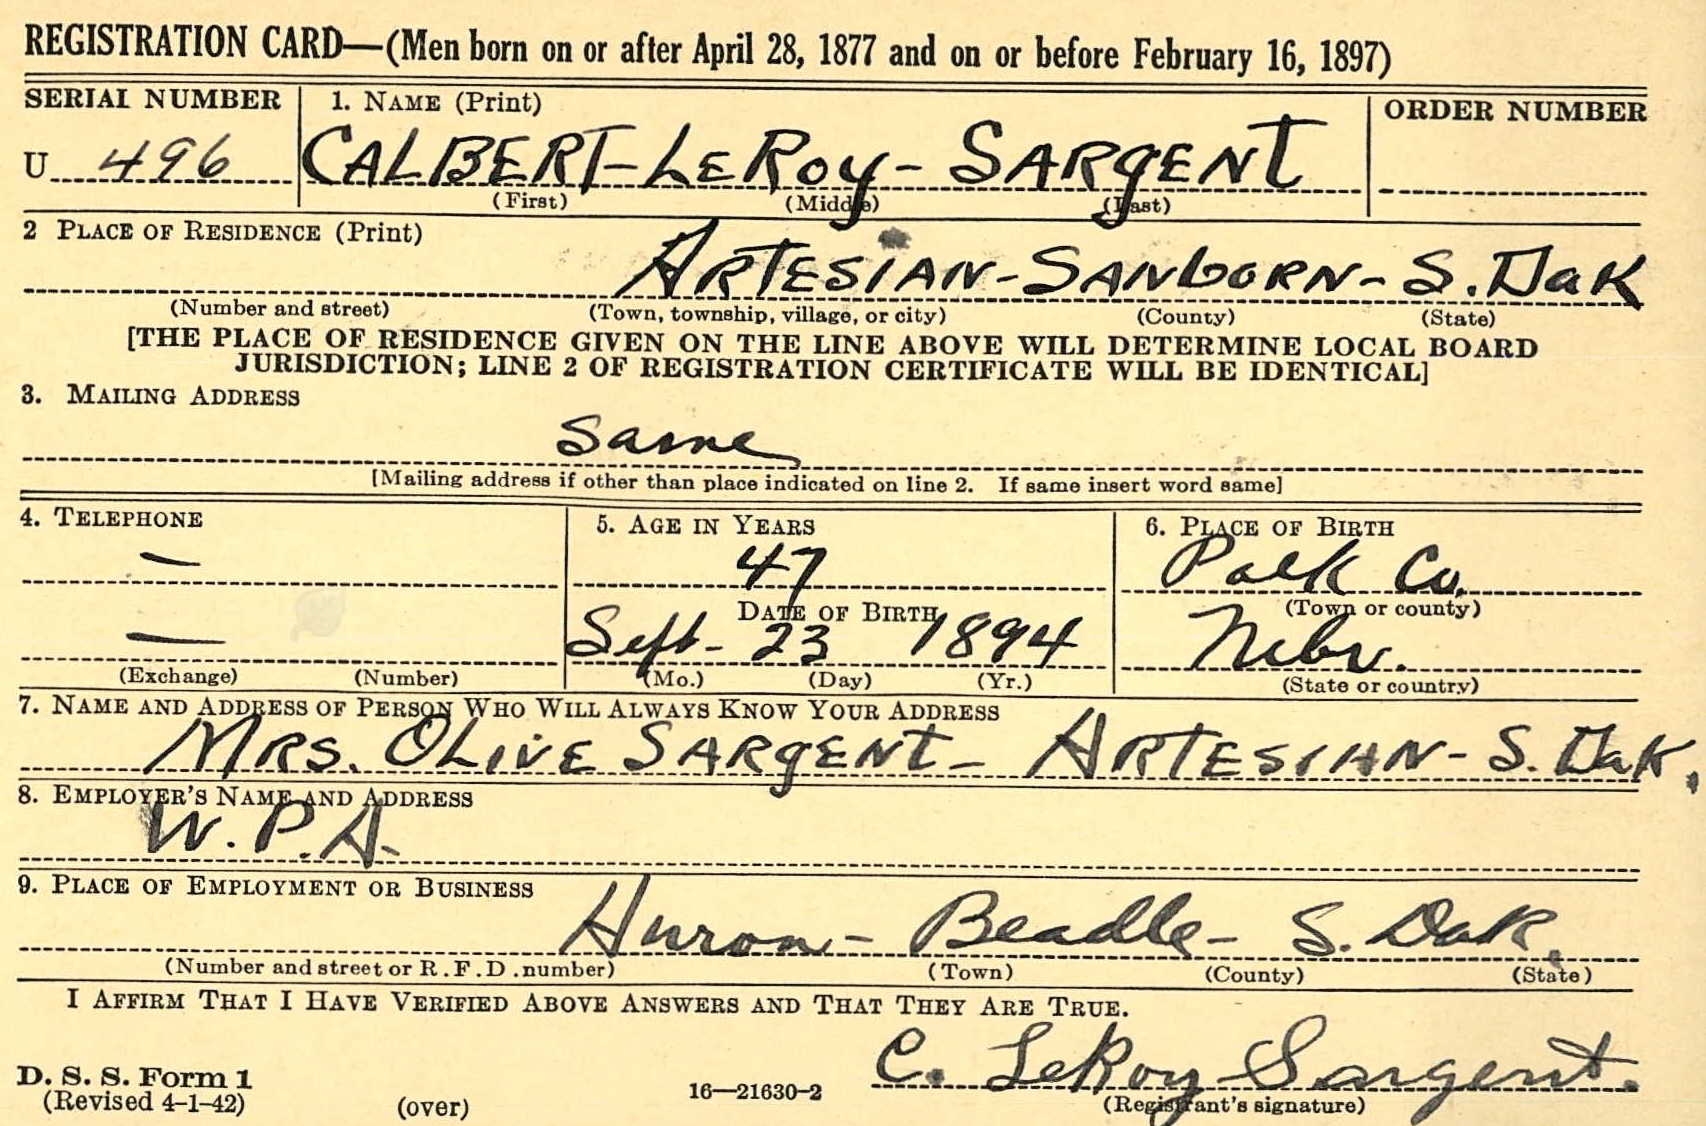 REGISTRATION CARD—(Men born on or after April 28, 1877 and on or before February 16, 1897)
SERIAL NUMBER 1. NAME (Print) ORDER NUMBER
U 496 CALBERT-LEROY-SARGENT
(First) (Middle) (Last)
2 PLACE OF RESIDENCE (Print)
ARTESIAN-SANBORN-S.DAK
(Number and street) (Town, township, village, or city) (County) (State)
[THE PLACE OF RESIDENCE GIVEN ON THE LINE ABOVE WILL DETERMINE LOCAL BOARD
JURISDICTION; LINE 2 OF REGISTRATION CERTIFICATE WILL BE IDENTICAL]
3. MAILING ADDRESS
Same
[Mailing address if other than place indicated on line 2. If same insert word same]
4. TELEPHONE 5. AGE IN YEARS 6. PLACE OF BIRTH
— 47 Polk Co.
DATE OF BIRTH (Town or county)
— Sept- 23 1894 Nebr.
(Exchange) (Number) (Mo.) (Day) (Yr.) (State or country)
7. NAME AND ADDRESS OF PERSON WHO WILL ALWAYS KNOW YOUR ADDRESS
MRS. OLIVE SARGENT- ARTESIAN-S.Dak.
8. EMPLOYER'S NAME AND ADDRESS
W.P.A.
9. PLACE OF EMPLOYMENT OR BUSINESS
Huron- Beadle- S. Dak.
(Number and street or R.F.D.number) (Town) (County) (State)
I AFFIRM THAT I HAVE VERIFIED ABOVE ANSWERS AND THAT THEY ARE TRUE.
C. LeRoy Sargent.
D. S. S. Form 1
(Revised 4-1-42) (over) 16—21630-2 (Registrant's signature)